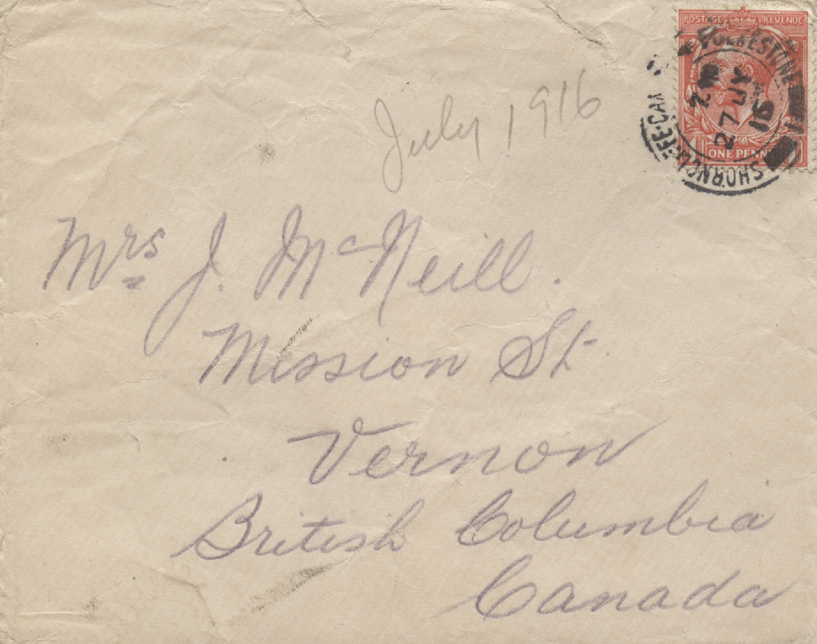 POSTAGE REVENUE
ONE PENNY
FOLKESTONE
27 JY
16
July 1916
Mrs J. McNeill.
Mission St.
Vernon
British Columbia
Canada